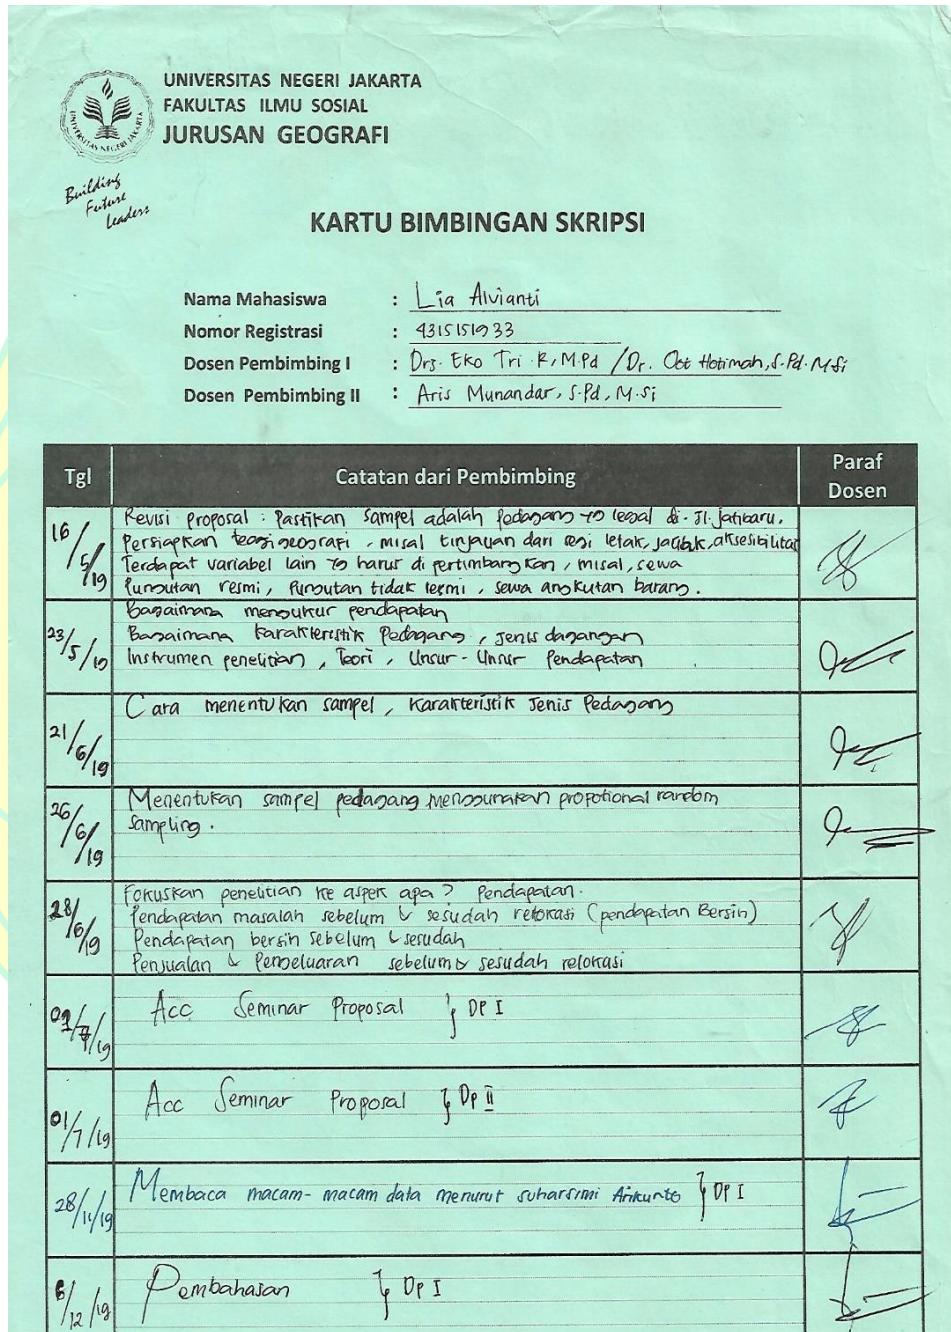 UNIVERSITAS NEGERI JAKARTA
FAKULTAS ILMU SOSIAL
JURUSAN GEOGRAFI
UNIVERSITAS NEGERI JAKARTA
Building
Future
Leaders
KARTU BIMBINGAN SKRIPSI
Nama Mahasiswa : Lia Alvianti
Nomor Registrasi : 4315151933
Dosen Pembimbing I : Drs. Eko Tri R, M.Pd / Dr. Ode Hotimah, S.Pd. M.Si
Dosen Pembimbing II : Aris Munandar, S.Pd, M.Si
Tgl Catatan dari Pembimbing Paraf Dosen
16/5/19 Revisi proposal : Pastikan sampel adalah pedagang yg legal di Jl. Jatibaru.
Persiapkan teori geografi, misal tinjauan dari segi letak, jarak, aksesibilitas
Terdapat variabel lain yg harus di pertimbangkan, misal, sewa
Pungutan resmi, Pungutan tidak resmi, sewa angkutan barang.
23/5/19 Bagaimana mengukur pendapatan
Bagaimana karakteristik Pedagang, jenis dagangan
Instrumen penelitian, Teori, Unsur-Unsur Pendapatan
21/6/19 Cara menentukan sampel, Karakteristik Jenis Pedagang
26/6/19 Menentukan sampel pedagang menggunakan propotional random
Sampling.
28/6/19 Fokuskan penelitian ke aspek apa? Pendapatan.
Pendapatan masalah sebelum & sesudah relokasi (pendapatan Bersih)
Pendapatan bersih sebelum & sesudah
Penjualan & Pengeluaran sebelum & sesudah relokasi
/7/19 Acc Seminar Proposal } DP I
01/7/19 Acc Seminar Proposal } Dp II
28/11/19 Membaca macam-macam data menurut suharsimi Arikunto } DP I
6/12/19 Pembahasan } DP I